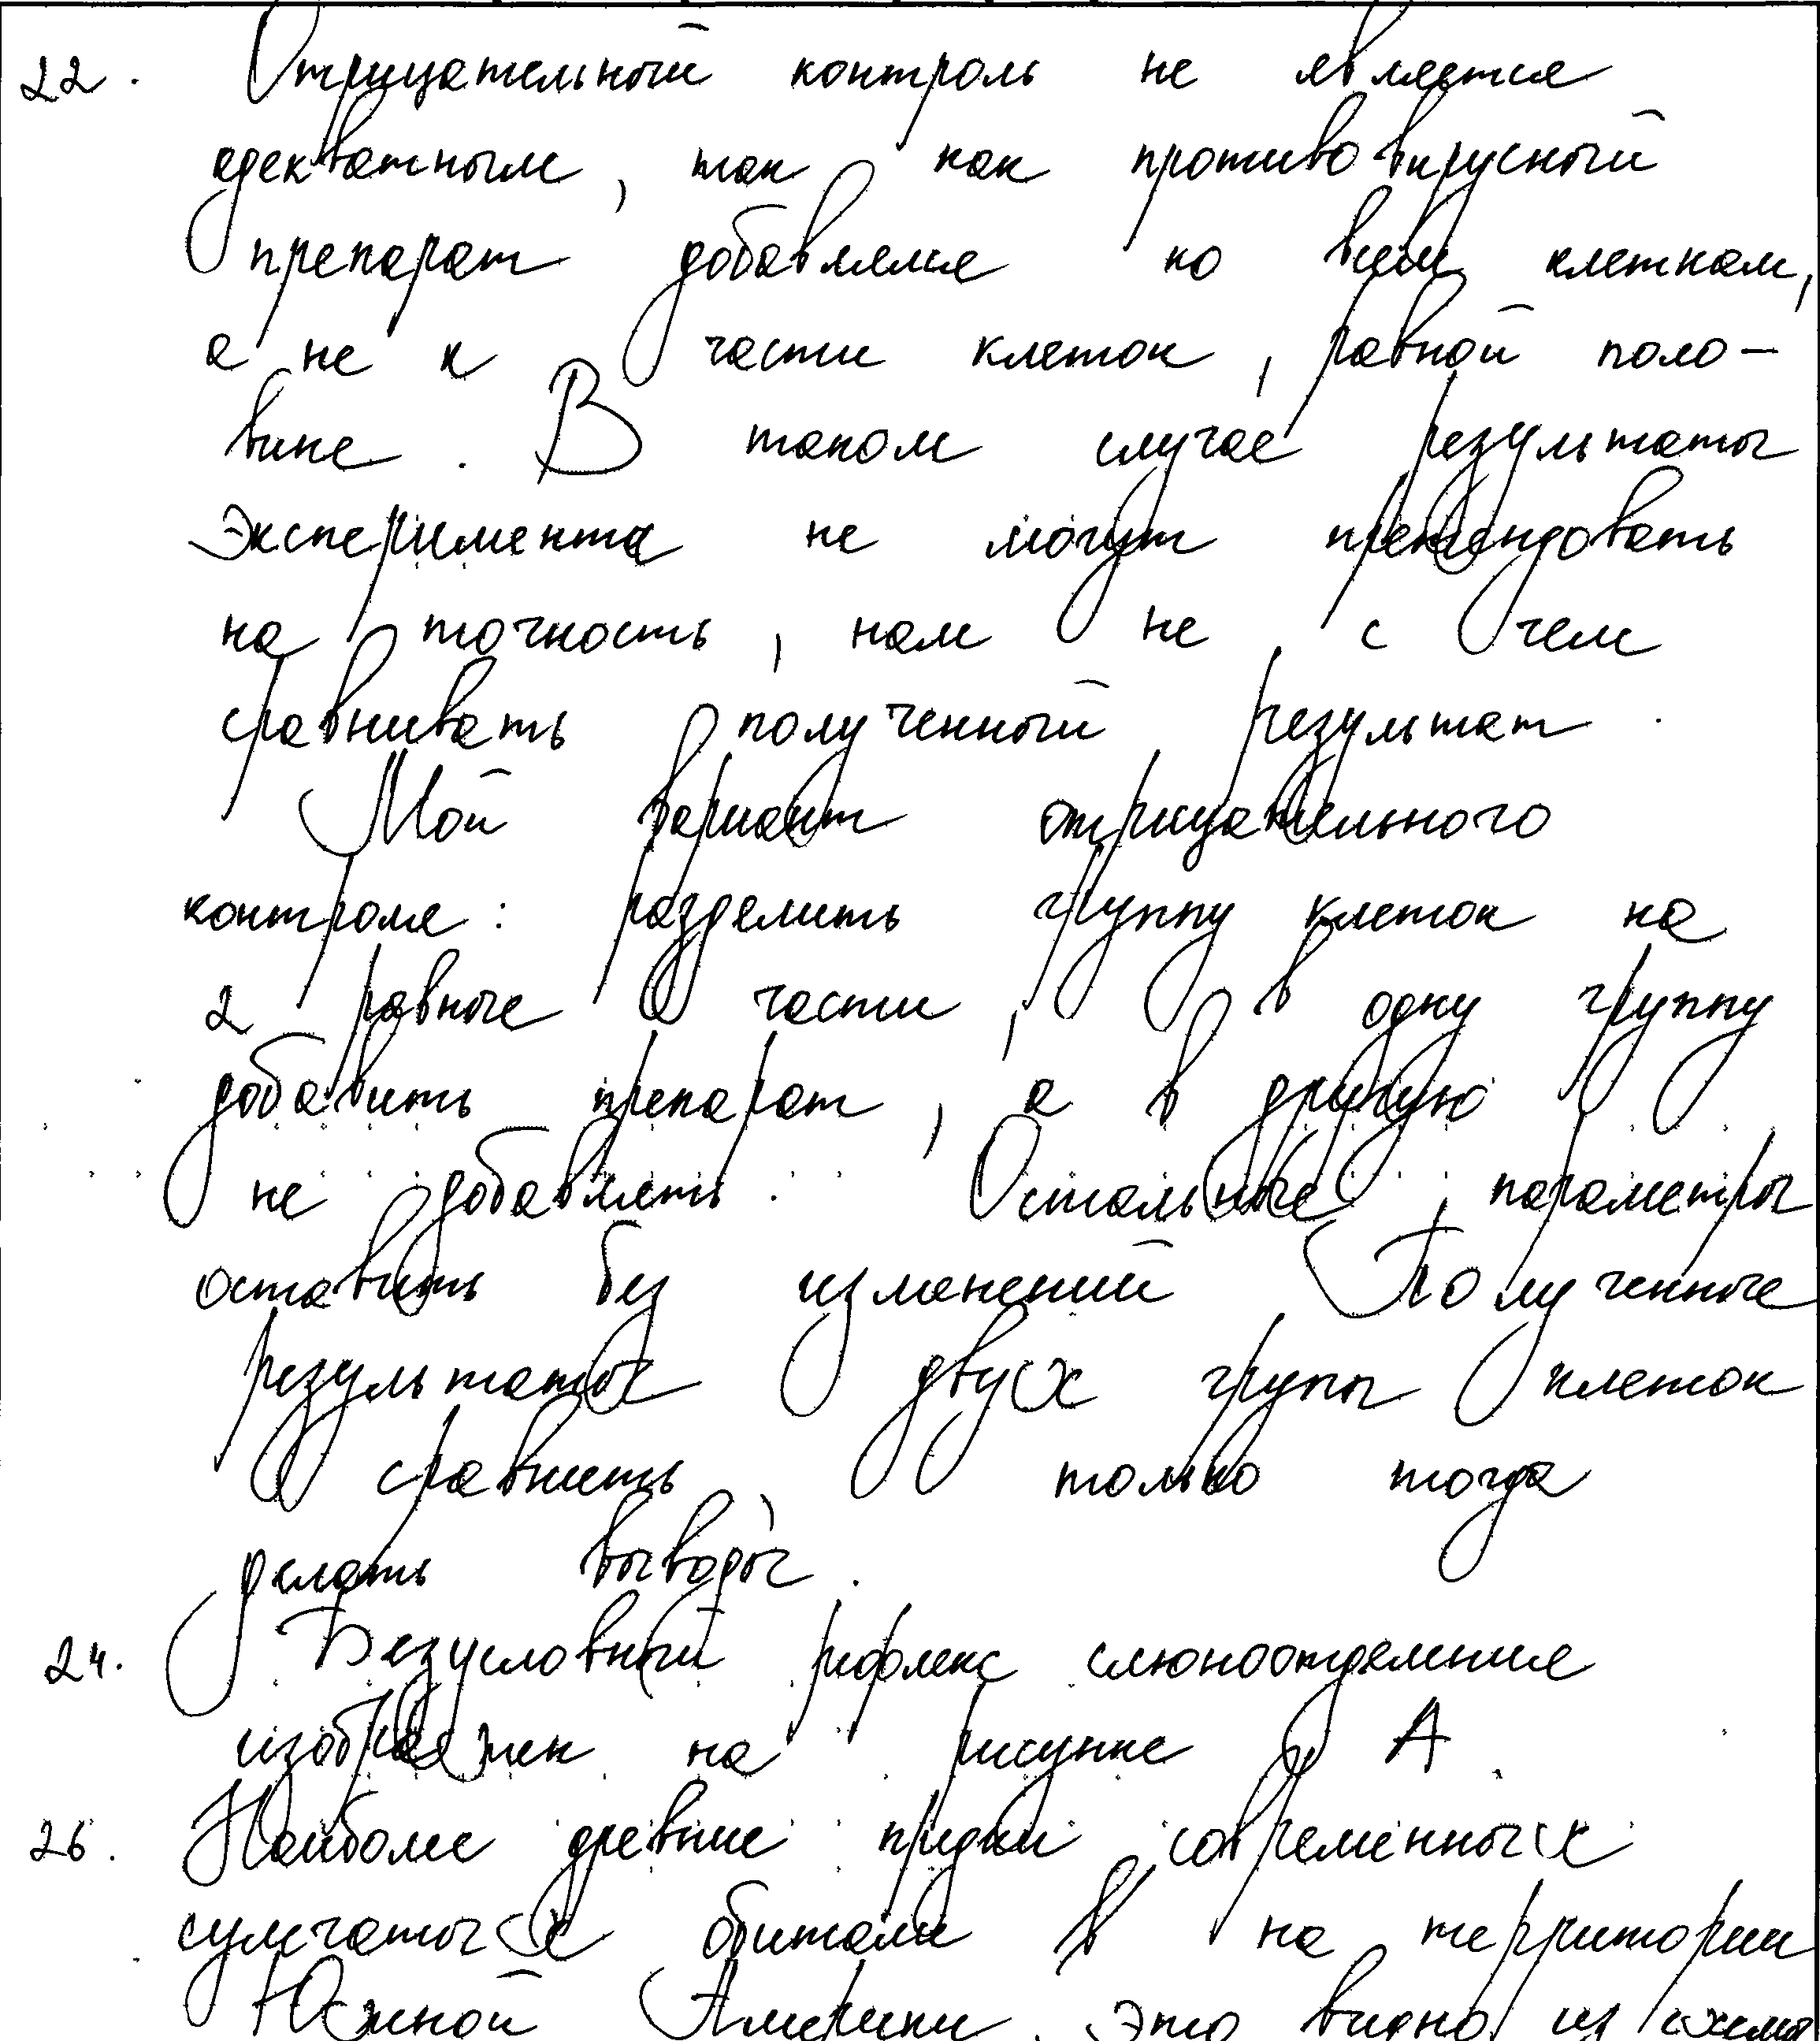 22. Отрицательный контроль не является
адекватным, так как противовирусный
препарат добавлялся ко всем клеткам,
а не к части клеток, равной поло-
вине. В таком случае результаты
эксперимента не могут претендовать
на точность, нам не с чем
сравнивать полученный результат.
Мой вариант отрицательного
контроля: разделить группу клеток на
2 равные части, в одну группу
добавить препарат, а в другую
не добавлять. Остальные параметры
оставить без изменений Полученные
результаты двух групы клеток
сравнить, только тогда
делать выводы.
24. Безусловный рефлекс слюноотделения
изображен на рисунке А.
26. Наиболее древние предки современных
сумчатых обитали в на территории
Южной Америки, это видно из схемы